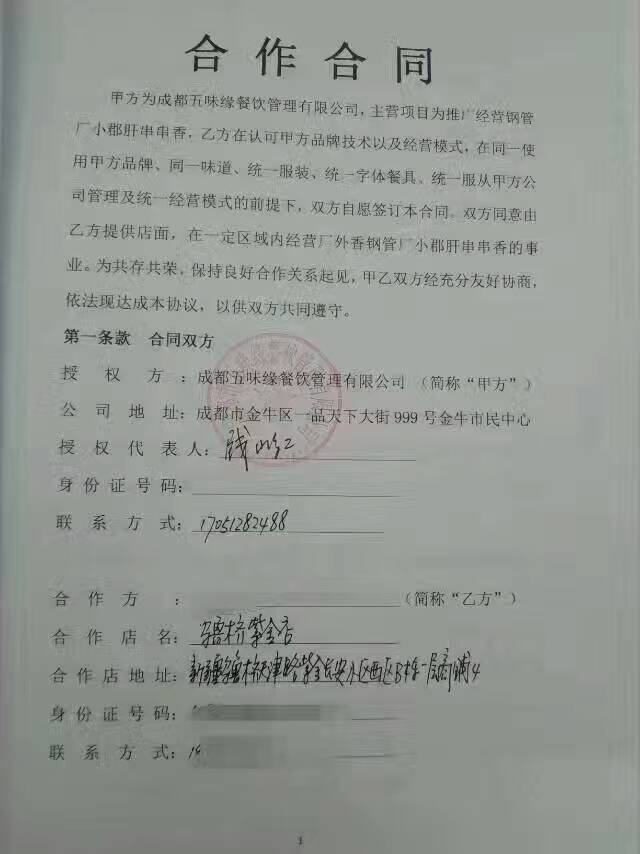 合作合同
甲方为成都五味缘餐饮管理有限公司，主营项目为推广经营钢管
厂小郡肝串串香，乙方在认可甲方品牌技术以及经营模式，在同一使
用甲方品牌、同一味道、统一服装、统一字体餐具、统一服从甲方公
司管理及统一经营模式的前提下，双方自愿签订本合同。双方同意由
乙方提供店面，在一定区域内经营厂外香钢管厂小郡肝串串香的事
业。为共存共荣，保持良好合作关系起见，甲乙双方经充分友好协商，
依法现达成本协议，以供双方共同遵守。
第一条款 合同双方
授权方：成都五味缘餐饮管理有限公司（简称“甲方”）
公司地址：成都市金牛区一品天下大街999号金牛市民中心
授权代表人：
身份证号码：
联系方式：17051282488
合作方：（简称“乙方”）
合作店名：紫金店
合作店地址：新疆天津路紫金长安小区西区B栋一层商铺4
身份证号码：
联系方式：
1